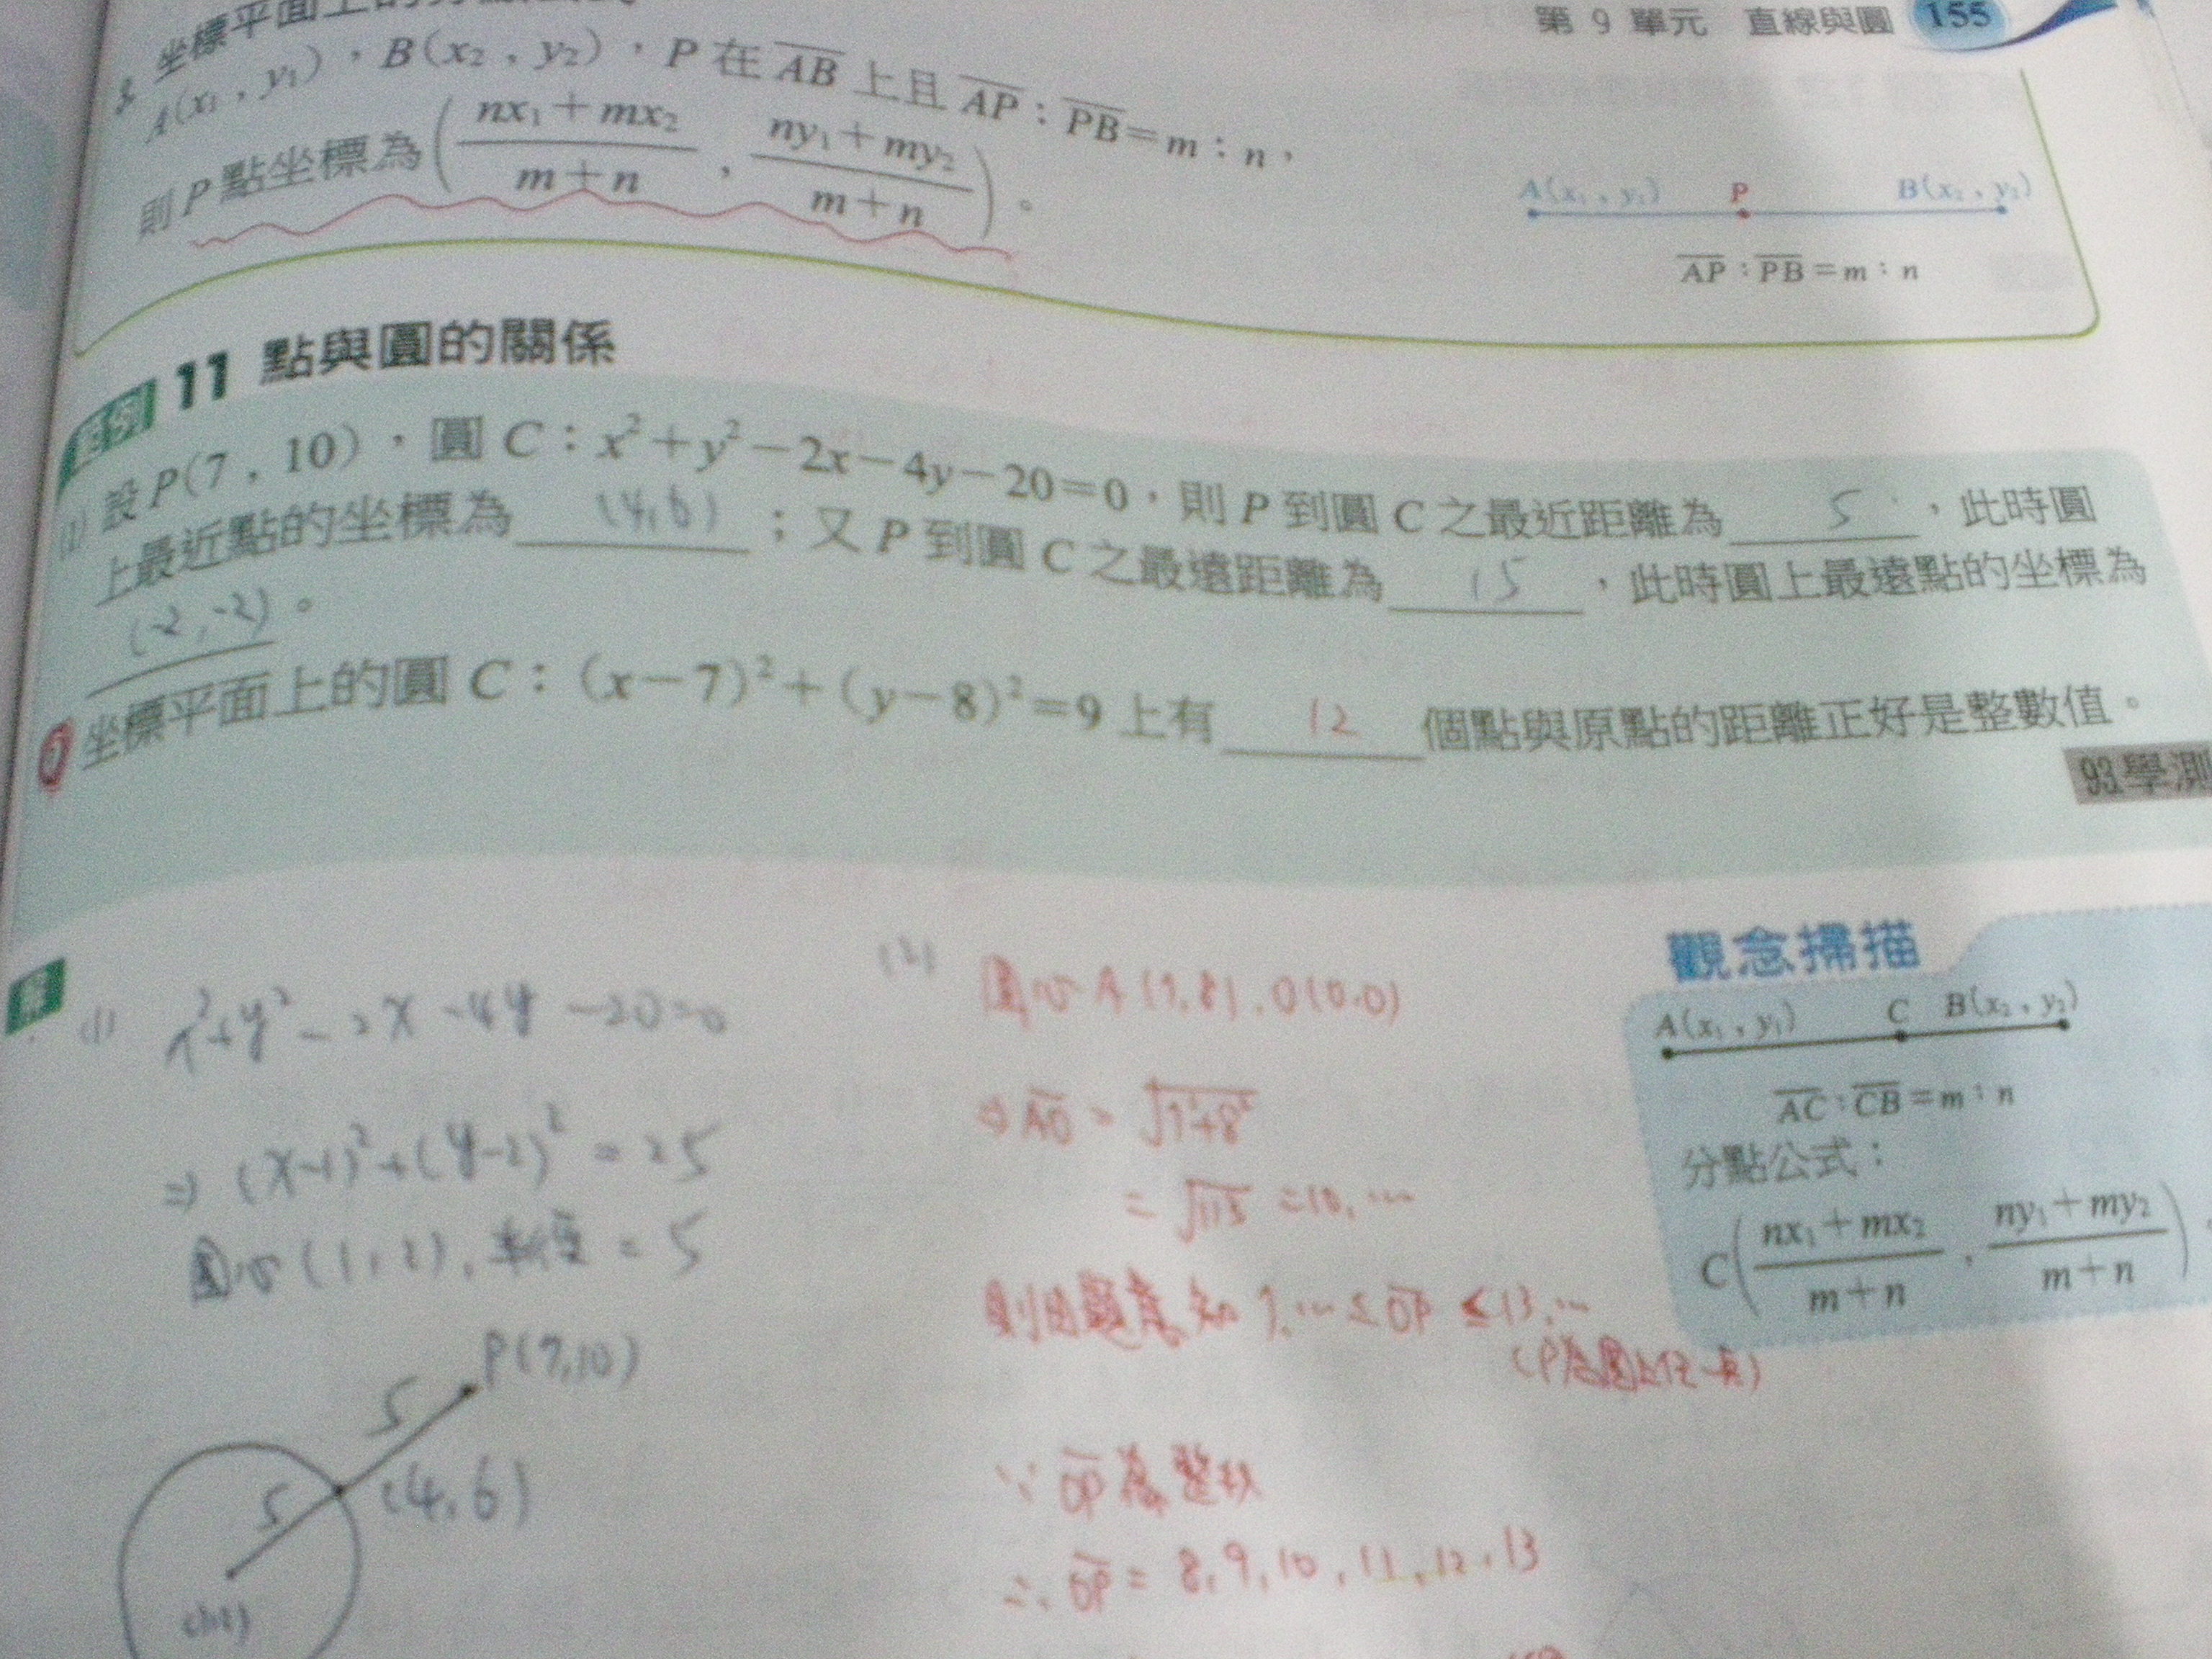 第 9 單元 直線與圓 155
坐標平面上的
A(x₁, y₁),B(x₂, y₂),P 在 AB 上且 AP:PB=m:n,
則 P 點坐標為 ( (nx₁+mx₂)/(m+n) , (ny₁+my₂)/(m+n) )。
A(x₁, y₁) P B(x₂, y₂)
AP:PB=m:n
11 點與圓的關係
(1) 設 P(7, 10),圓 C:x²+y²-2x-4y-20=0,則 P 到圓 C 之最近距離為 5,此時圓
上最近點的坐標為 (4,6);又 P 到圓 C 之最遠距離為 15,此時圓上最遠點的坐標為
(-2,-2)。
坐標平面上的圓 C:(x-7)²+(y-8)²=9 上有 12 個點與原點的距離正好是整數值。
93.學測
解
(1) x²+y²-2x-4y-20=0
⇒ (x-1)²+(y-2)²=25
圓心(1,2), 半徑=5
P(7,10)
5
(4,6)
5
(2) 圓心A(7,8), O(0,0)
⇒ AO = √7²+8²
= √113 = 10.…
則由題意知 7.… ≤ OP ≤ 13.…
(P為圓上任一點)
∵ OP 為整數
∴ OP = 8, 9, 10, 11, 12, 13
觀念掃描
A(x₁, y₁) C B(x₂, y₂)
AC:CB=m:n
分點公式:
C( (nx₁+mx₂)/(m+n) , (ny₁+my₂)/(m+n) )